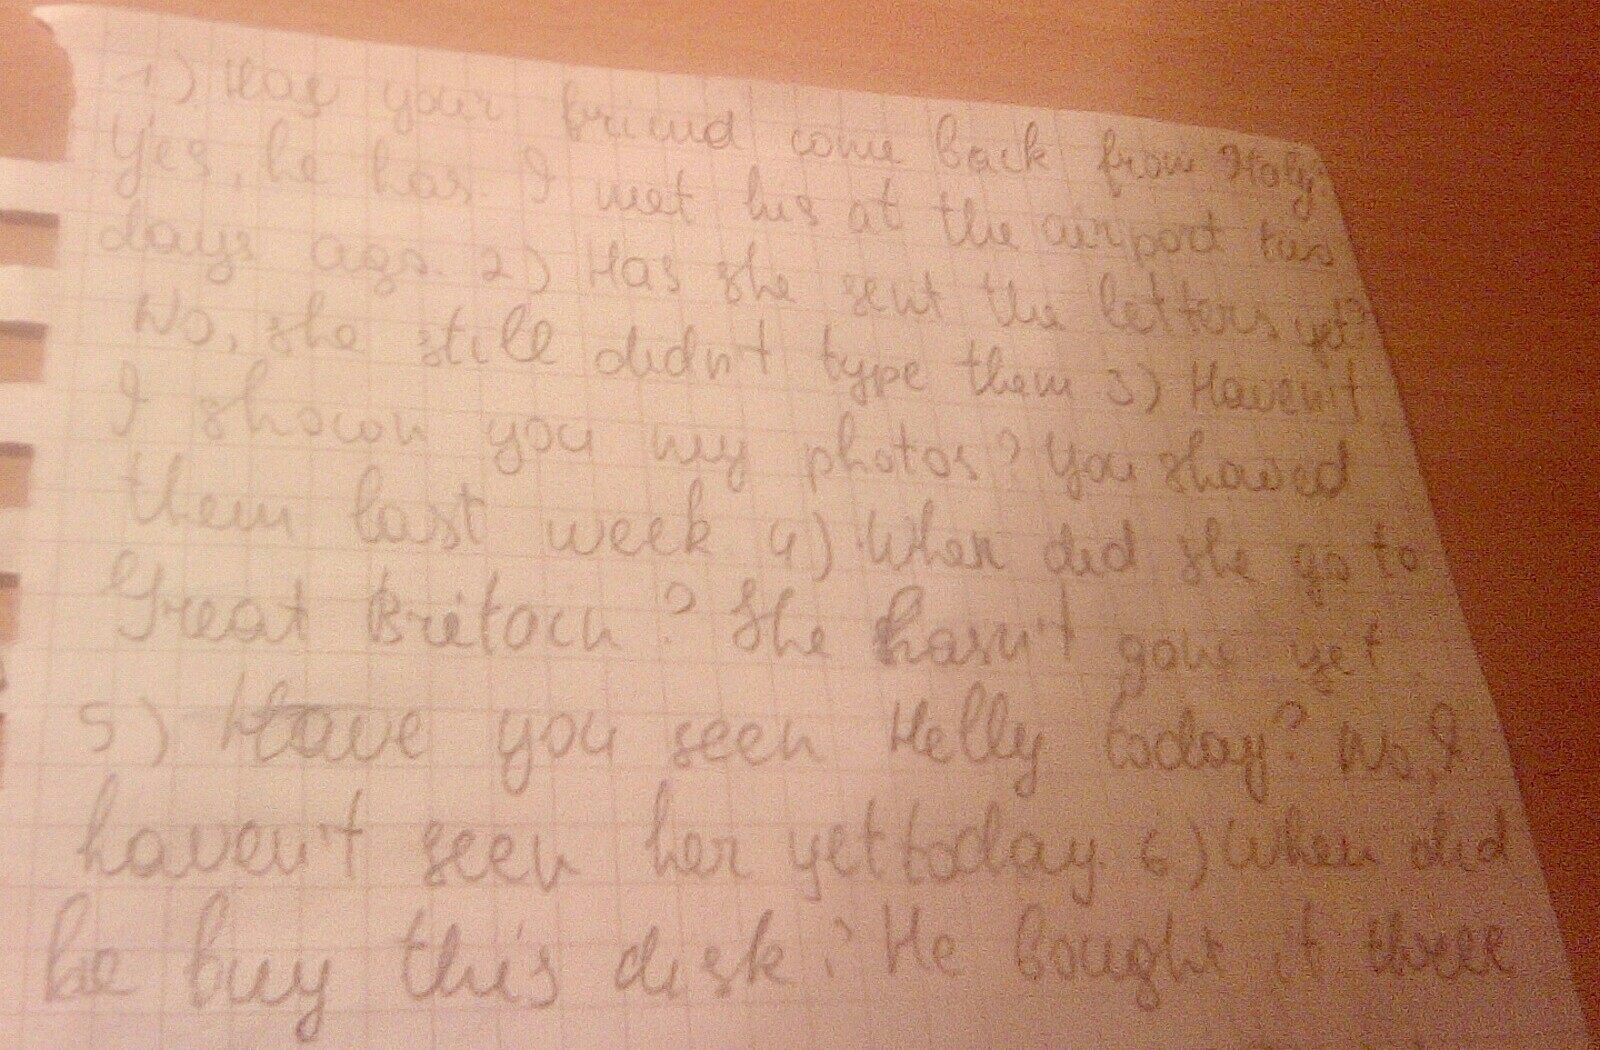 1) Has your friend come back from Italy?
Yes, he has. I met his at the airport two
days ago. 2) Has she sent the letters yet?
No, she still didn't type them 3) Haven't
I shown you my photos? You showed
them last week 4) When did she go to
Great Britain? She hasn't gone yet
5) Have you seen Helly today? No, I
haven't seen her yet today. 6) When did
he buy this disk? He bought it three